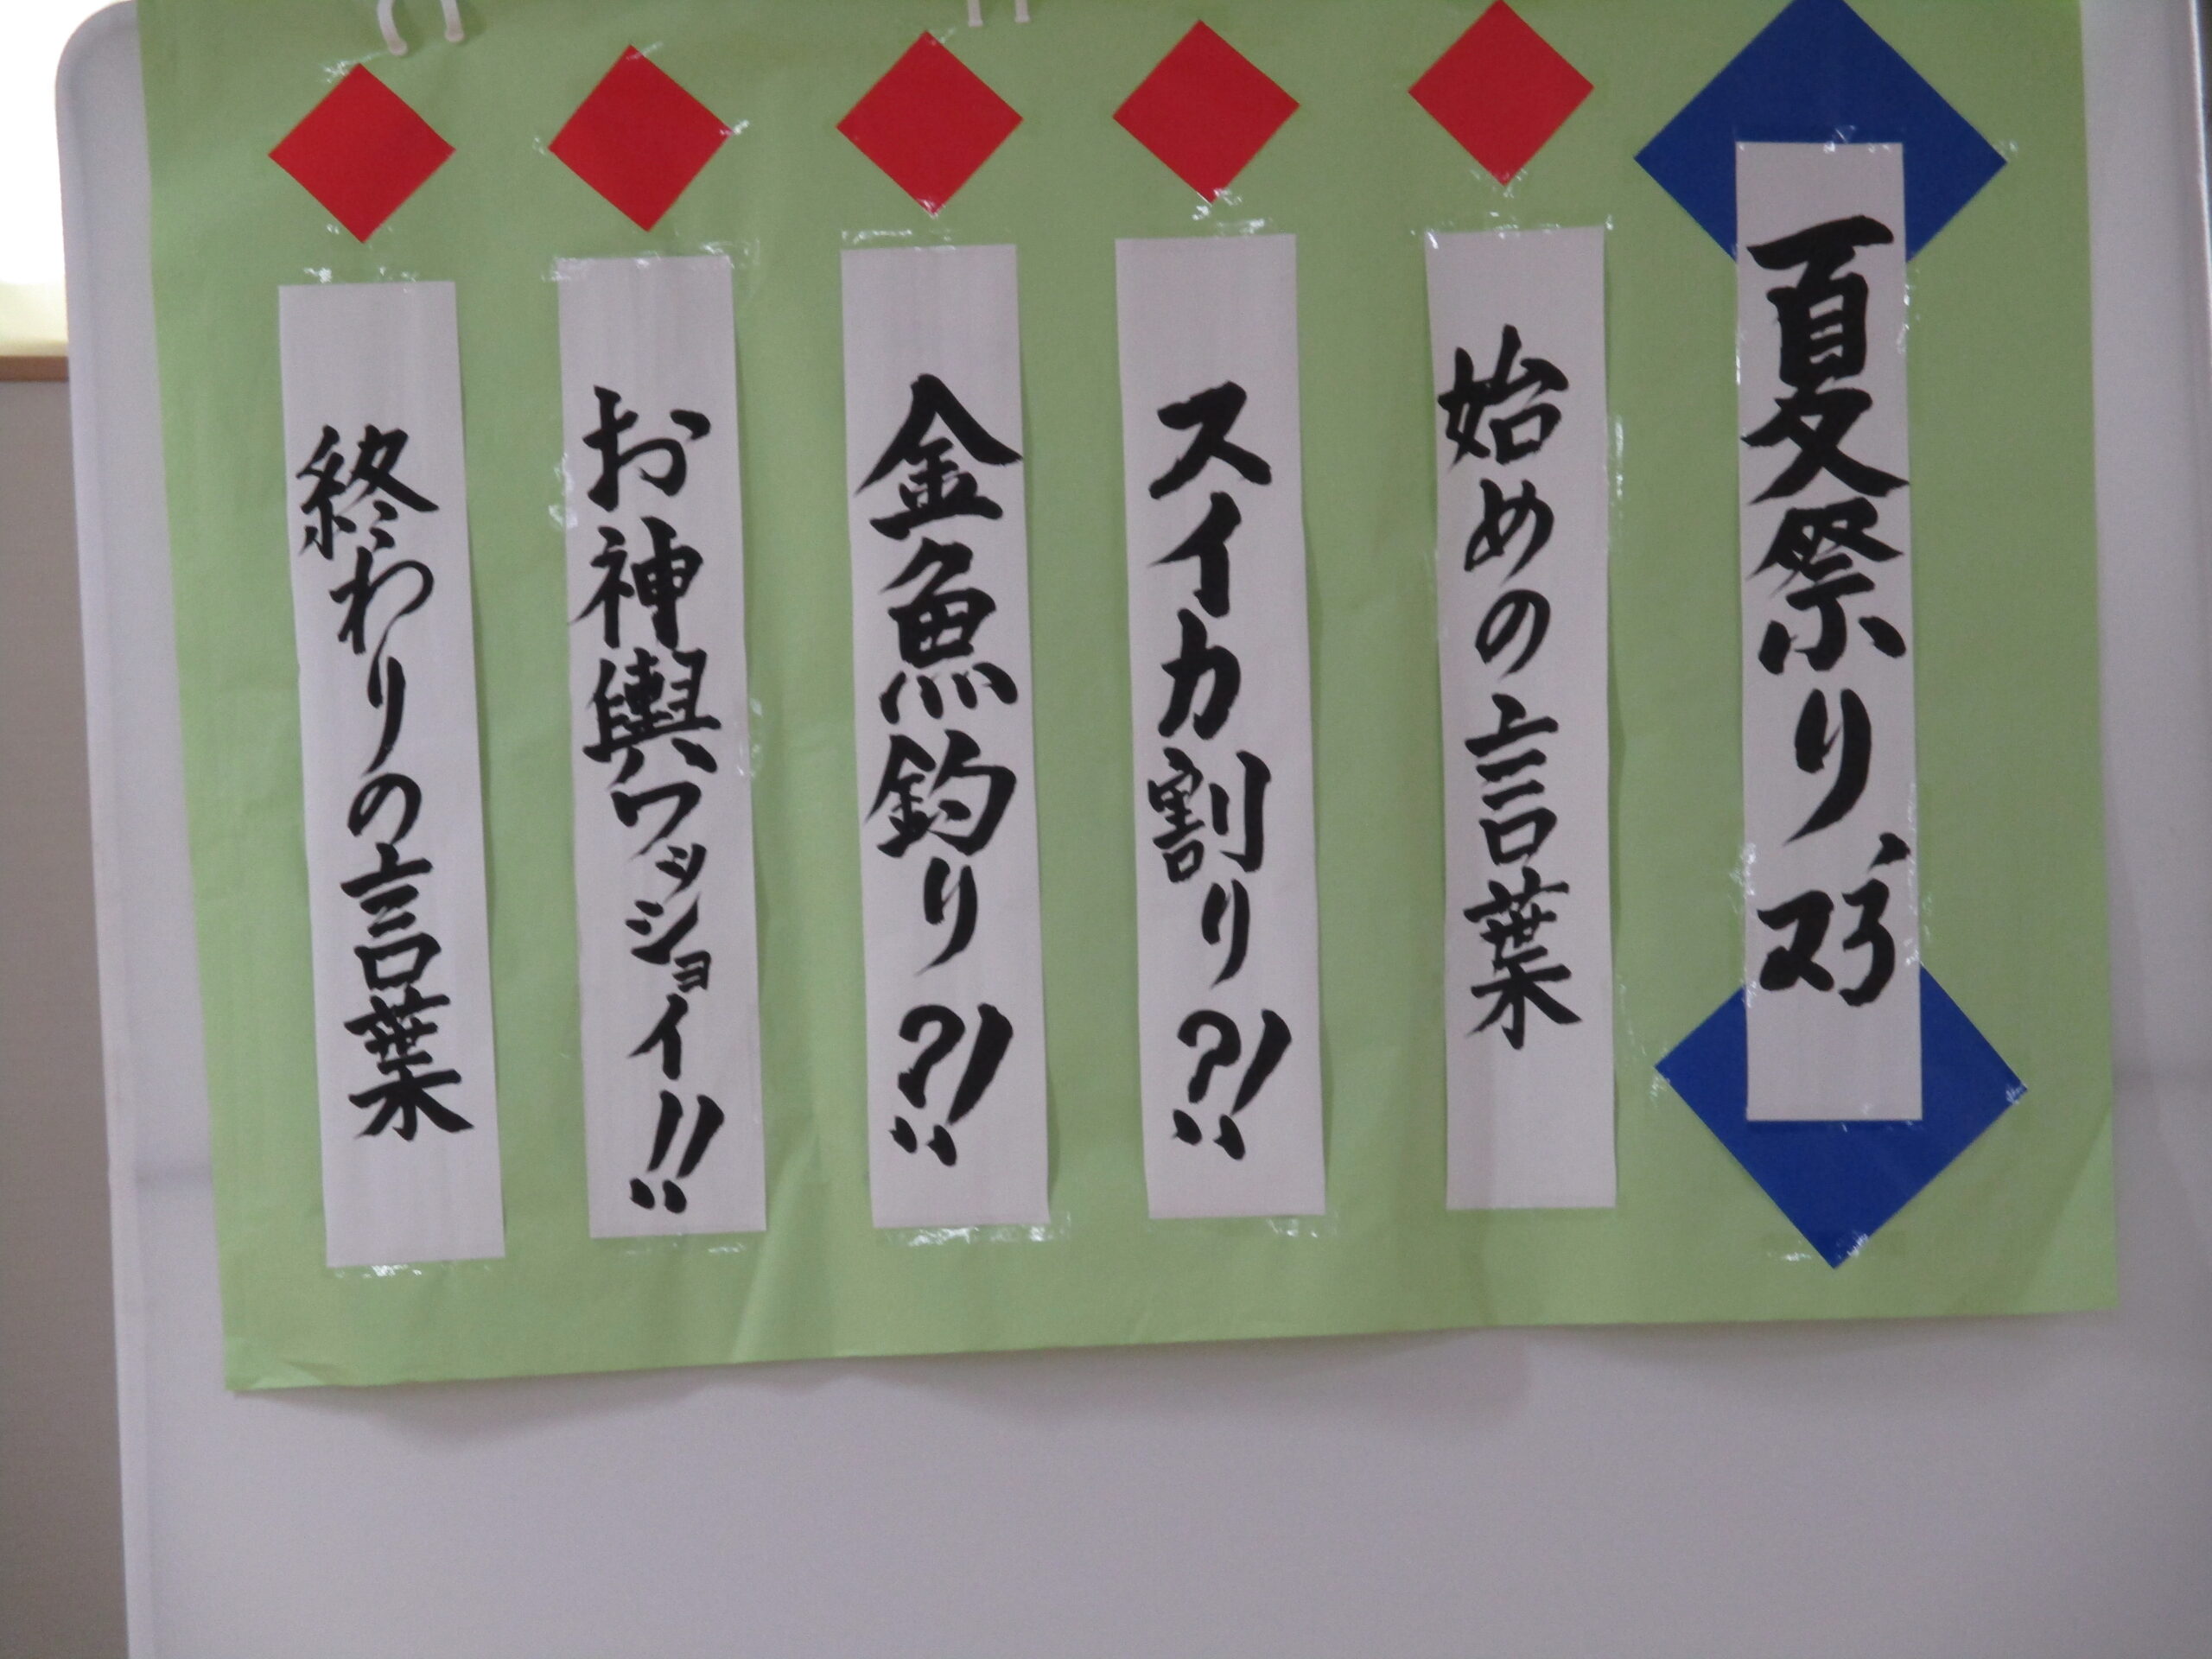 夏祭り '23
始めの言葉
スイカ割り?!
金魚釣り?!
お神輿ワッショイ!!
終わりの言葉